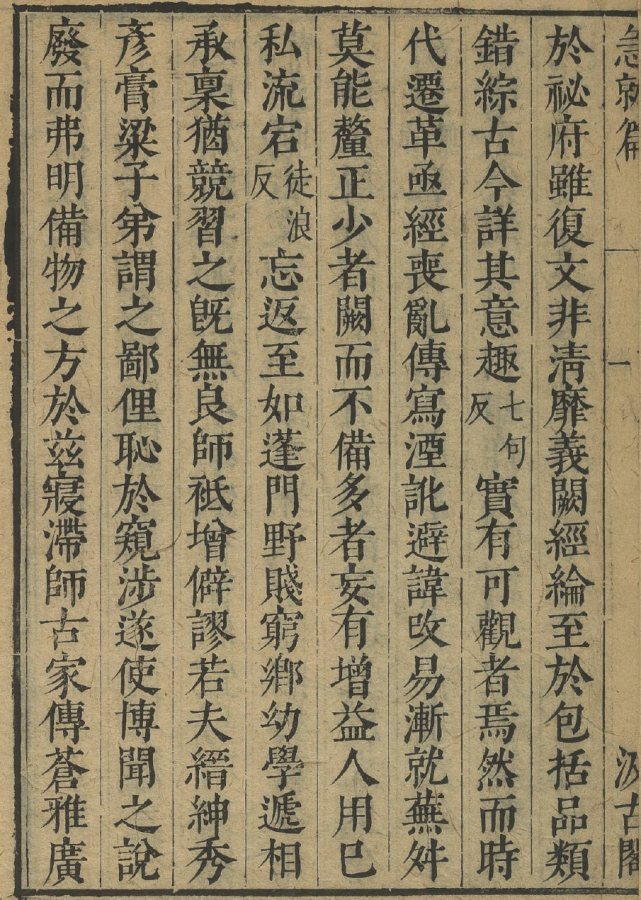 急就篇 一 汲古閣
於祕府雖復文非淸靡義闕經綸至於包括品類
錯綜古今詳其意趣七句反實有可觀者焉然而時
代遷革亟經喪亂傳寫湮訛避諱改易漸就蕪舛
莫能釐正少者闕而不備多者妄有增益人用己
私流宕徒浪反忘返至如蓬門野賤窮鄉幼學遞相
承稟猶競習之旣無良師祗增僻謬若夫縉紳秀
彥膏粱子弟謂之鄙俚恥於窺涉遂使博聞之說
廢而弗明備物之方於茲寢滯師古家傳蒼雅廣